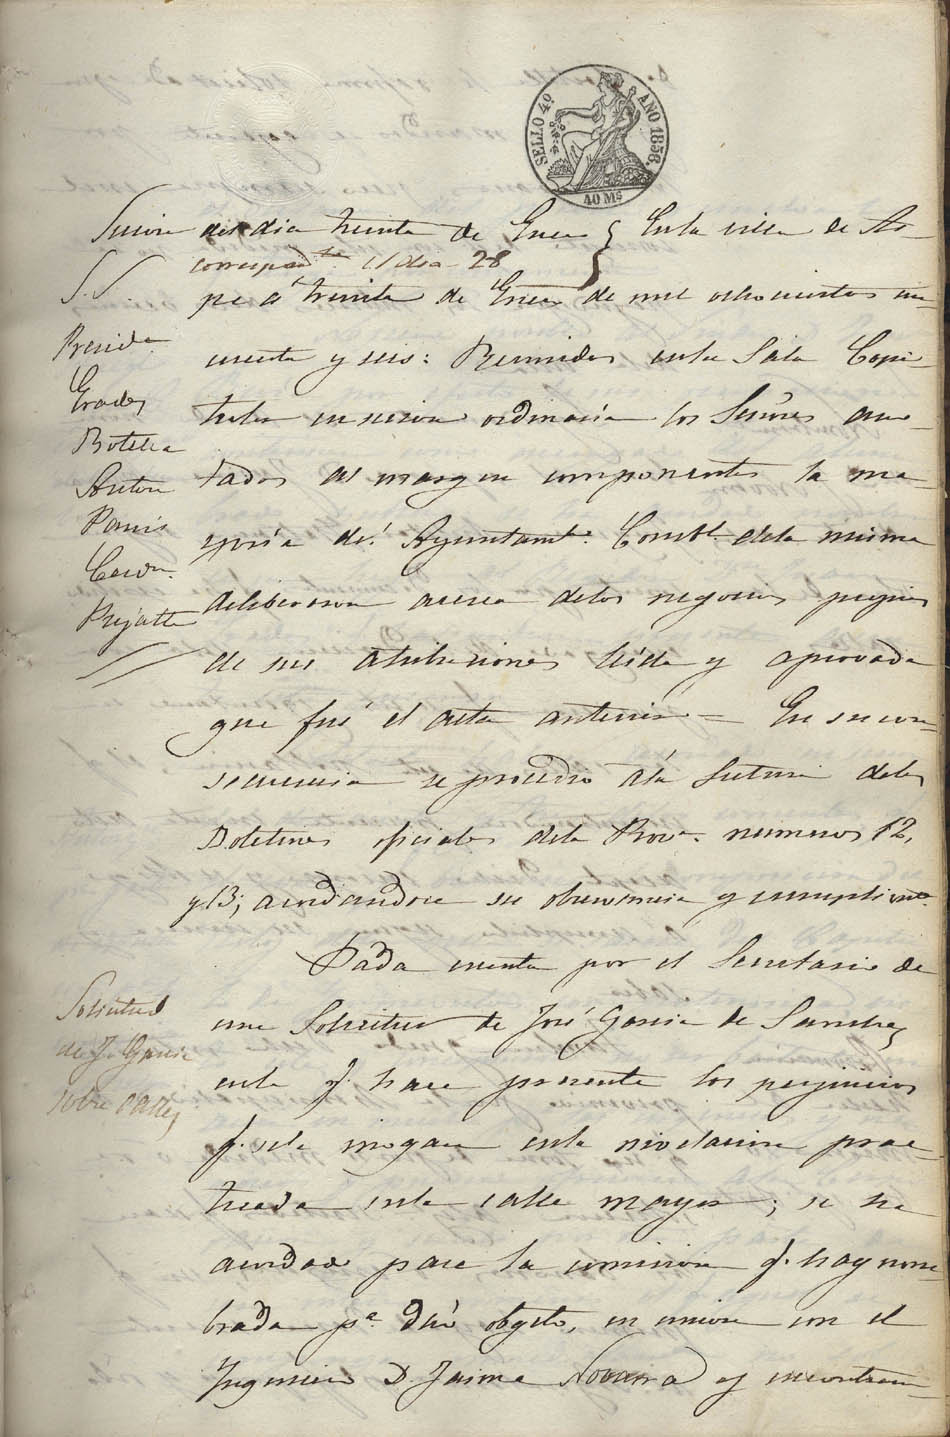 SELLO 4º AÑO 1856.
40 Ms
Sesion del dia treinta de Enero } En la villa de As-
correspondte. el dia 28
pe á treinta de Enero de mil ochocientos cin-
cuenta y seis: Reunidos en la Sala Capi-
tular en sesion ordinaria los Señores ano-
tados al margen componentes la ma-
yoria del Ayuntamto. Constl. dela misma
deliberaron acerca delos negocios propios
de sus atribuciones leida y aprovada
que fué el acta anterior = En su con-
secuencia se procedio ála lectura delos
Boletines oficiales dela Prova. numeros 12,
y 13; acordandose su observancia y cumplimto.
Dada cuenta por el Secretario de
una Solicitud de José Garcia de Sanchez
enla q. hace presente los perjuicios
q. sele irrogan enla nivelacion prac-
ticada enla calle mayor; se ha
acordado pase la comision q. hay nom-
brada pa. dho objeto, en union con el
Ingeniero D. Jaime y encontran-
S.S.
Preside.
Grades
Botella
Anton
Pauis
Cerdn.
Prejatte
Solicitud
de J. Garcia
sobre calles